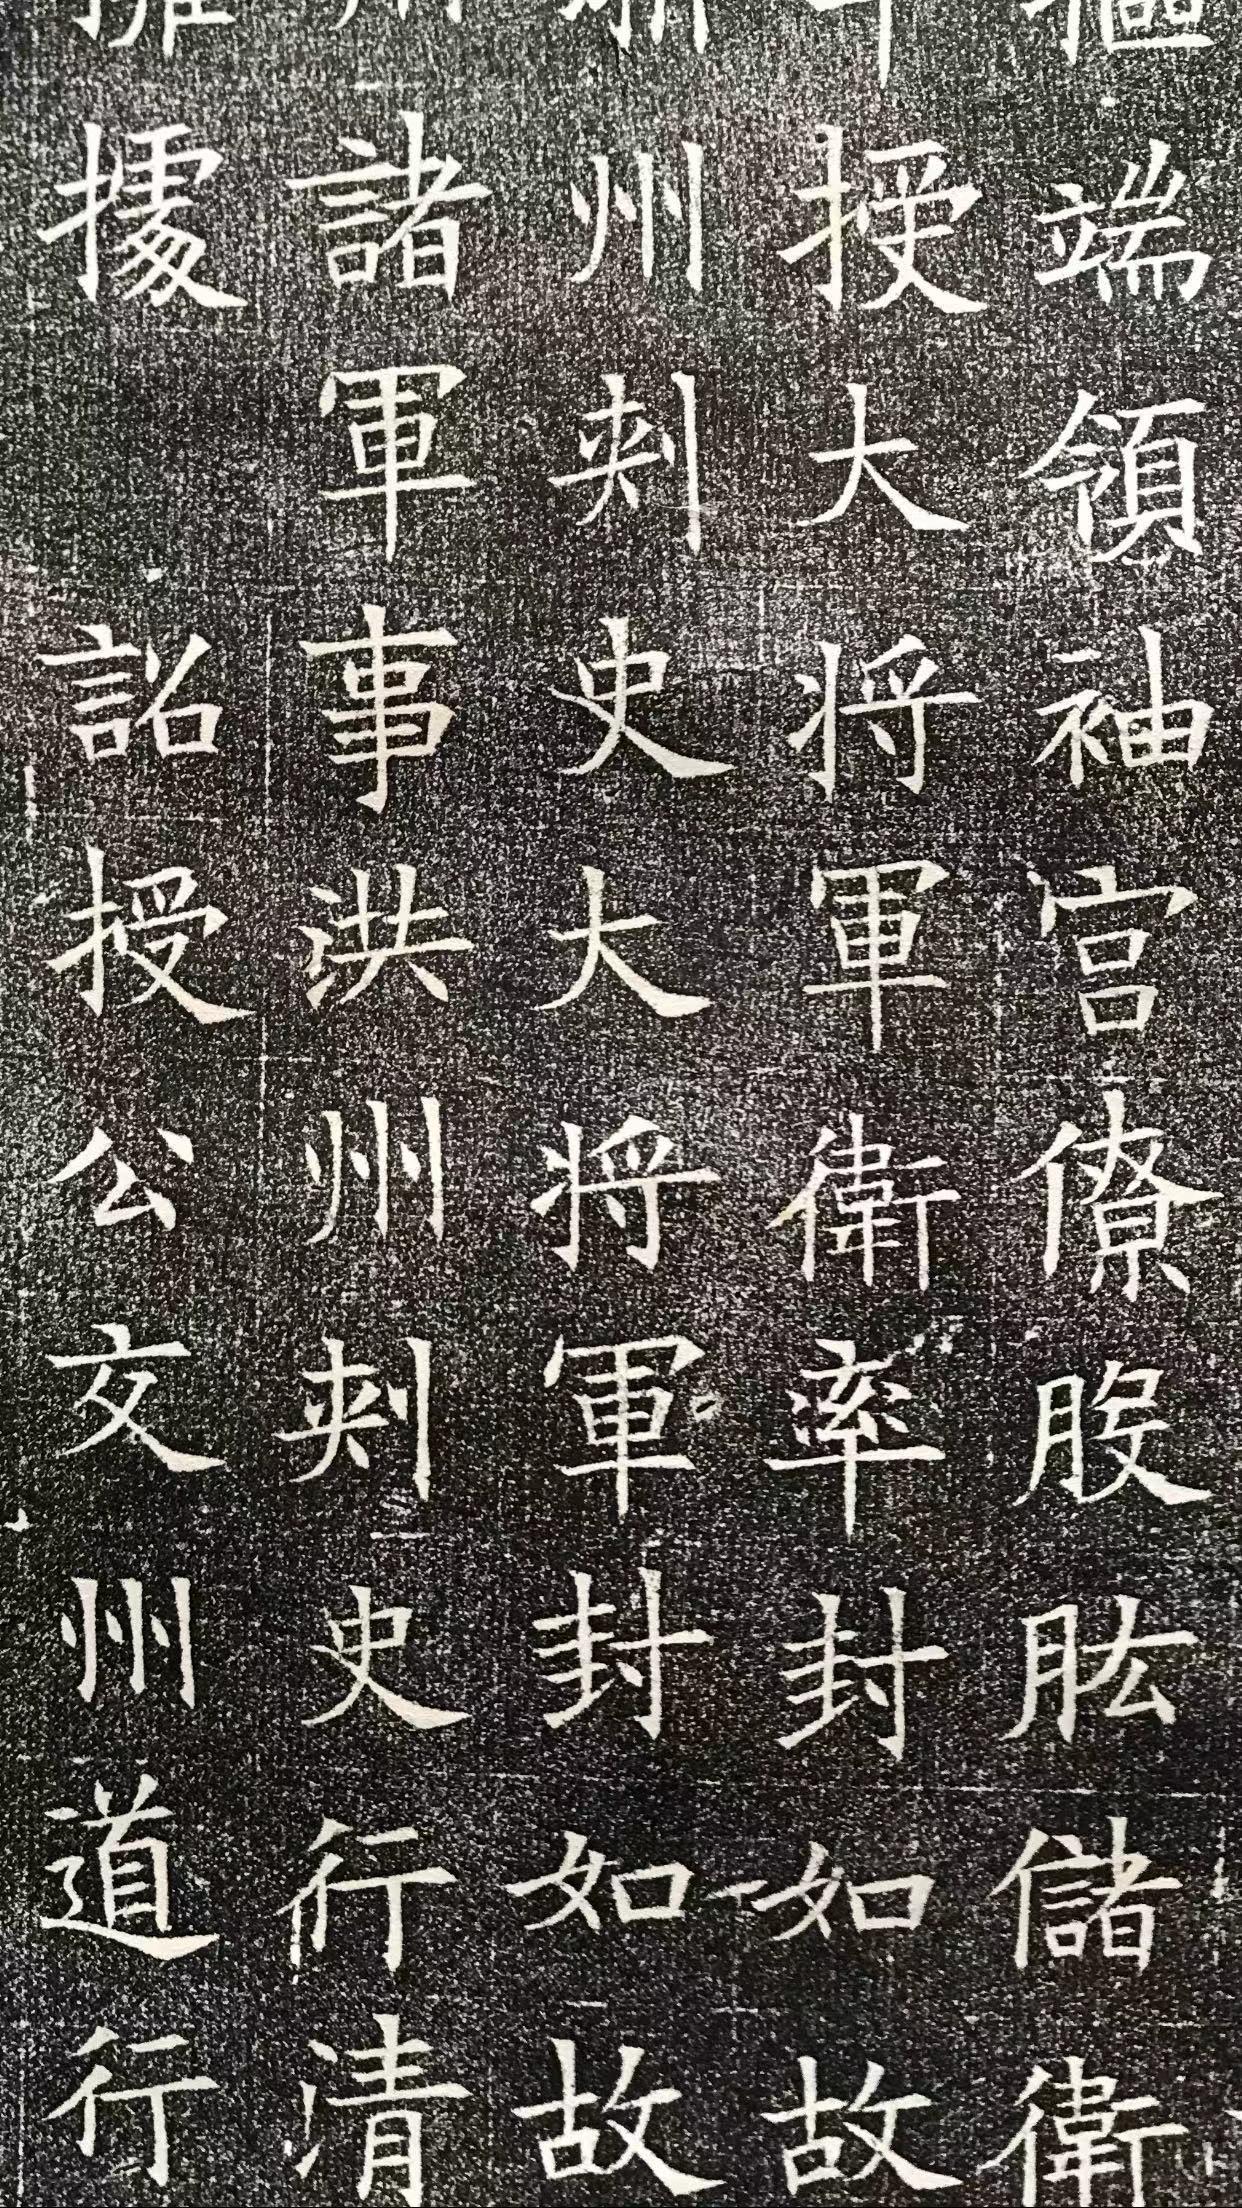 端領袖官僚股肱儲衛
授大將軍衛率封如故
州刾史大將軍封如故
諸軍事洪州刾史行清
據詔授公交州道行